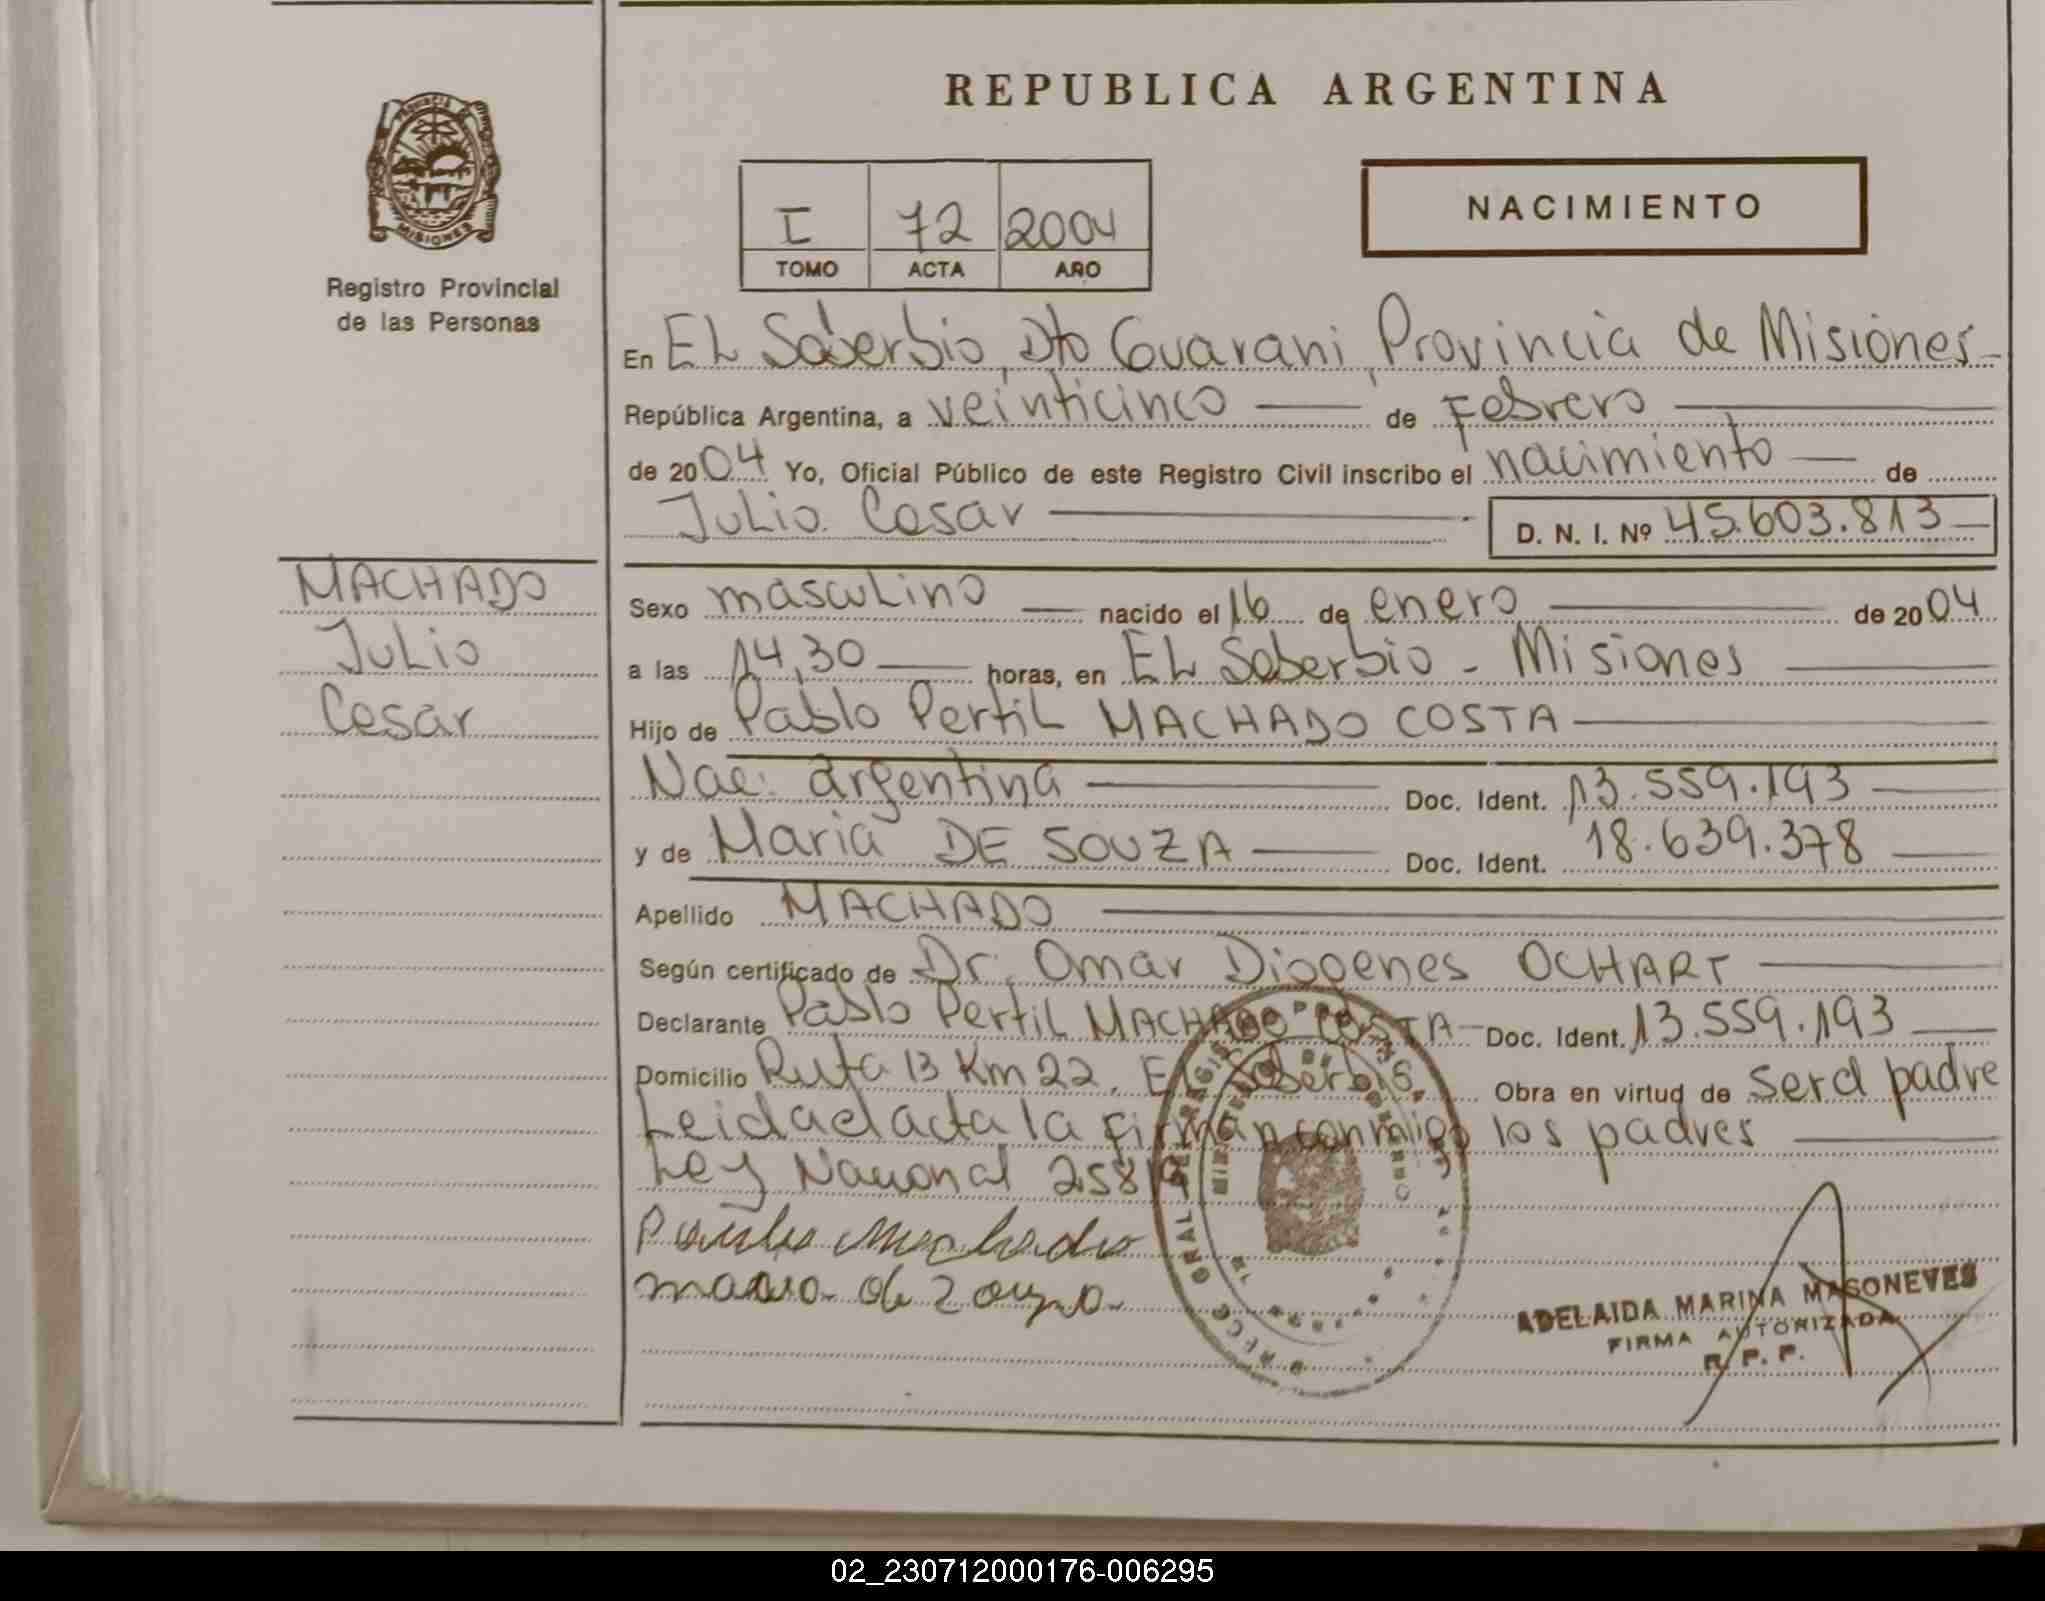 REPUBLICA ARGENTINA
PROVINCIA DE
MISIONES
Registro Provincial
de las Personas
I 72 2004
TOMO ACTA AÑO
NACIMIENTO
En EL Soberbio, Dto Guarani, Provincia de Misiones
República Argentina, a veinticinco de Febrero
de 2004 Yo, Oficial Público de este Registro Civil inscribo el nacimiento de
Julio Cesar D. N. I. Nº 45.603.813
MACHADO
Julio
Cesar
Sexo masculino nacido el 16 de enero de 2004
a las 14,30 horas, en EL Soberbio - Misiones
Hijo de Pablo Pertil MACHADO COSTA
Nac: argentina Doc. Ident. 13.559.193
y de Maria DE SOUZA Doc. Ident. 18.639.378
Apellido MACHADO
Según certificado de Dr. Omar Diogenes OCHART
Declarante Pablo Pertil MACHADO COSTA Doc. Ident. 13.559.193
Domicilio Ruta 13 Km 22, El Soberbio Obra en virtud de ser el padre
Leida el acta la firman conmigo los padres
Ley Nacional 25819
ADELAIDA MARINA MASONEVES
FIRMA AUTORIZADA
R. P. P.
02_230712000176-006295